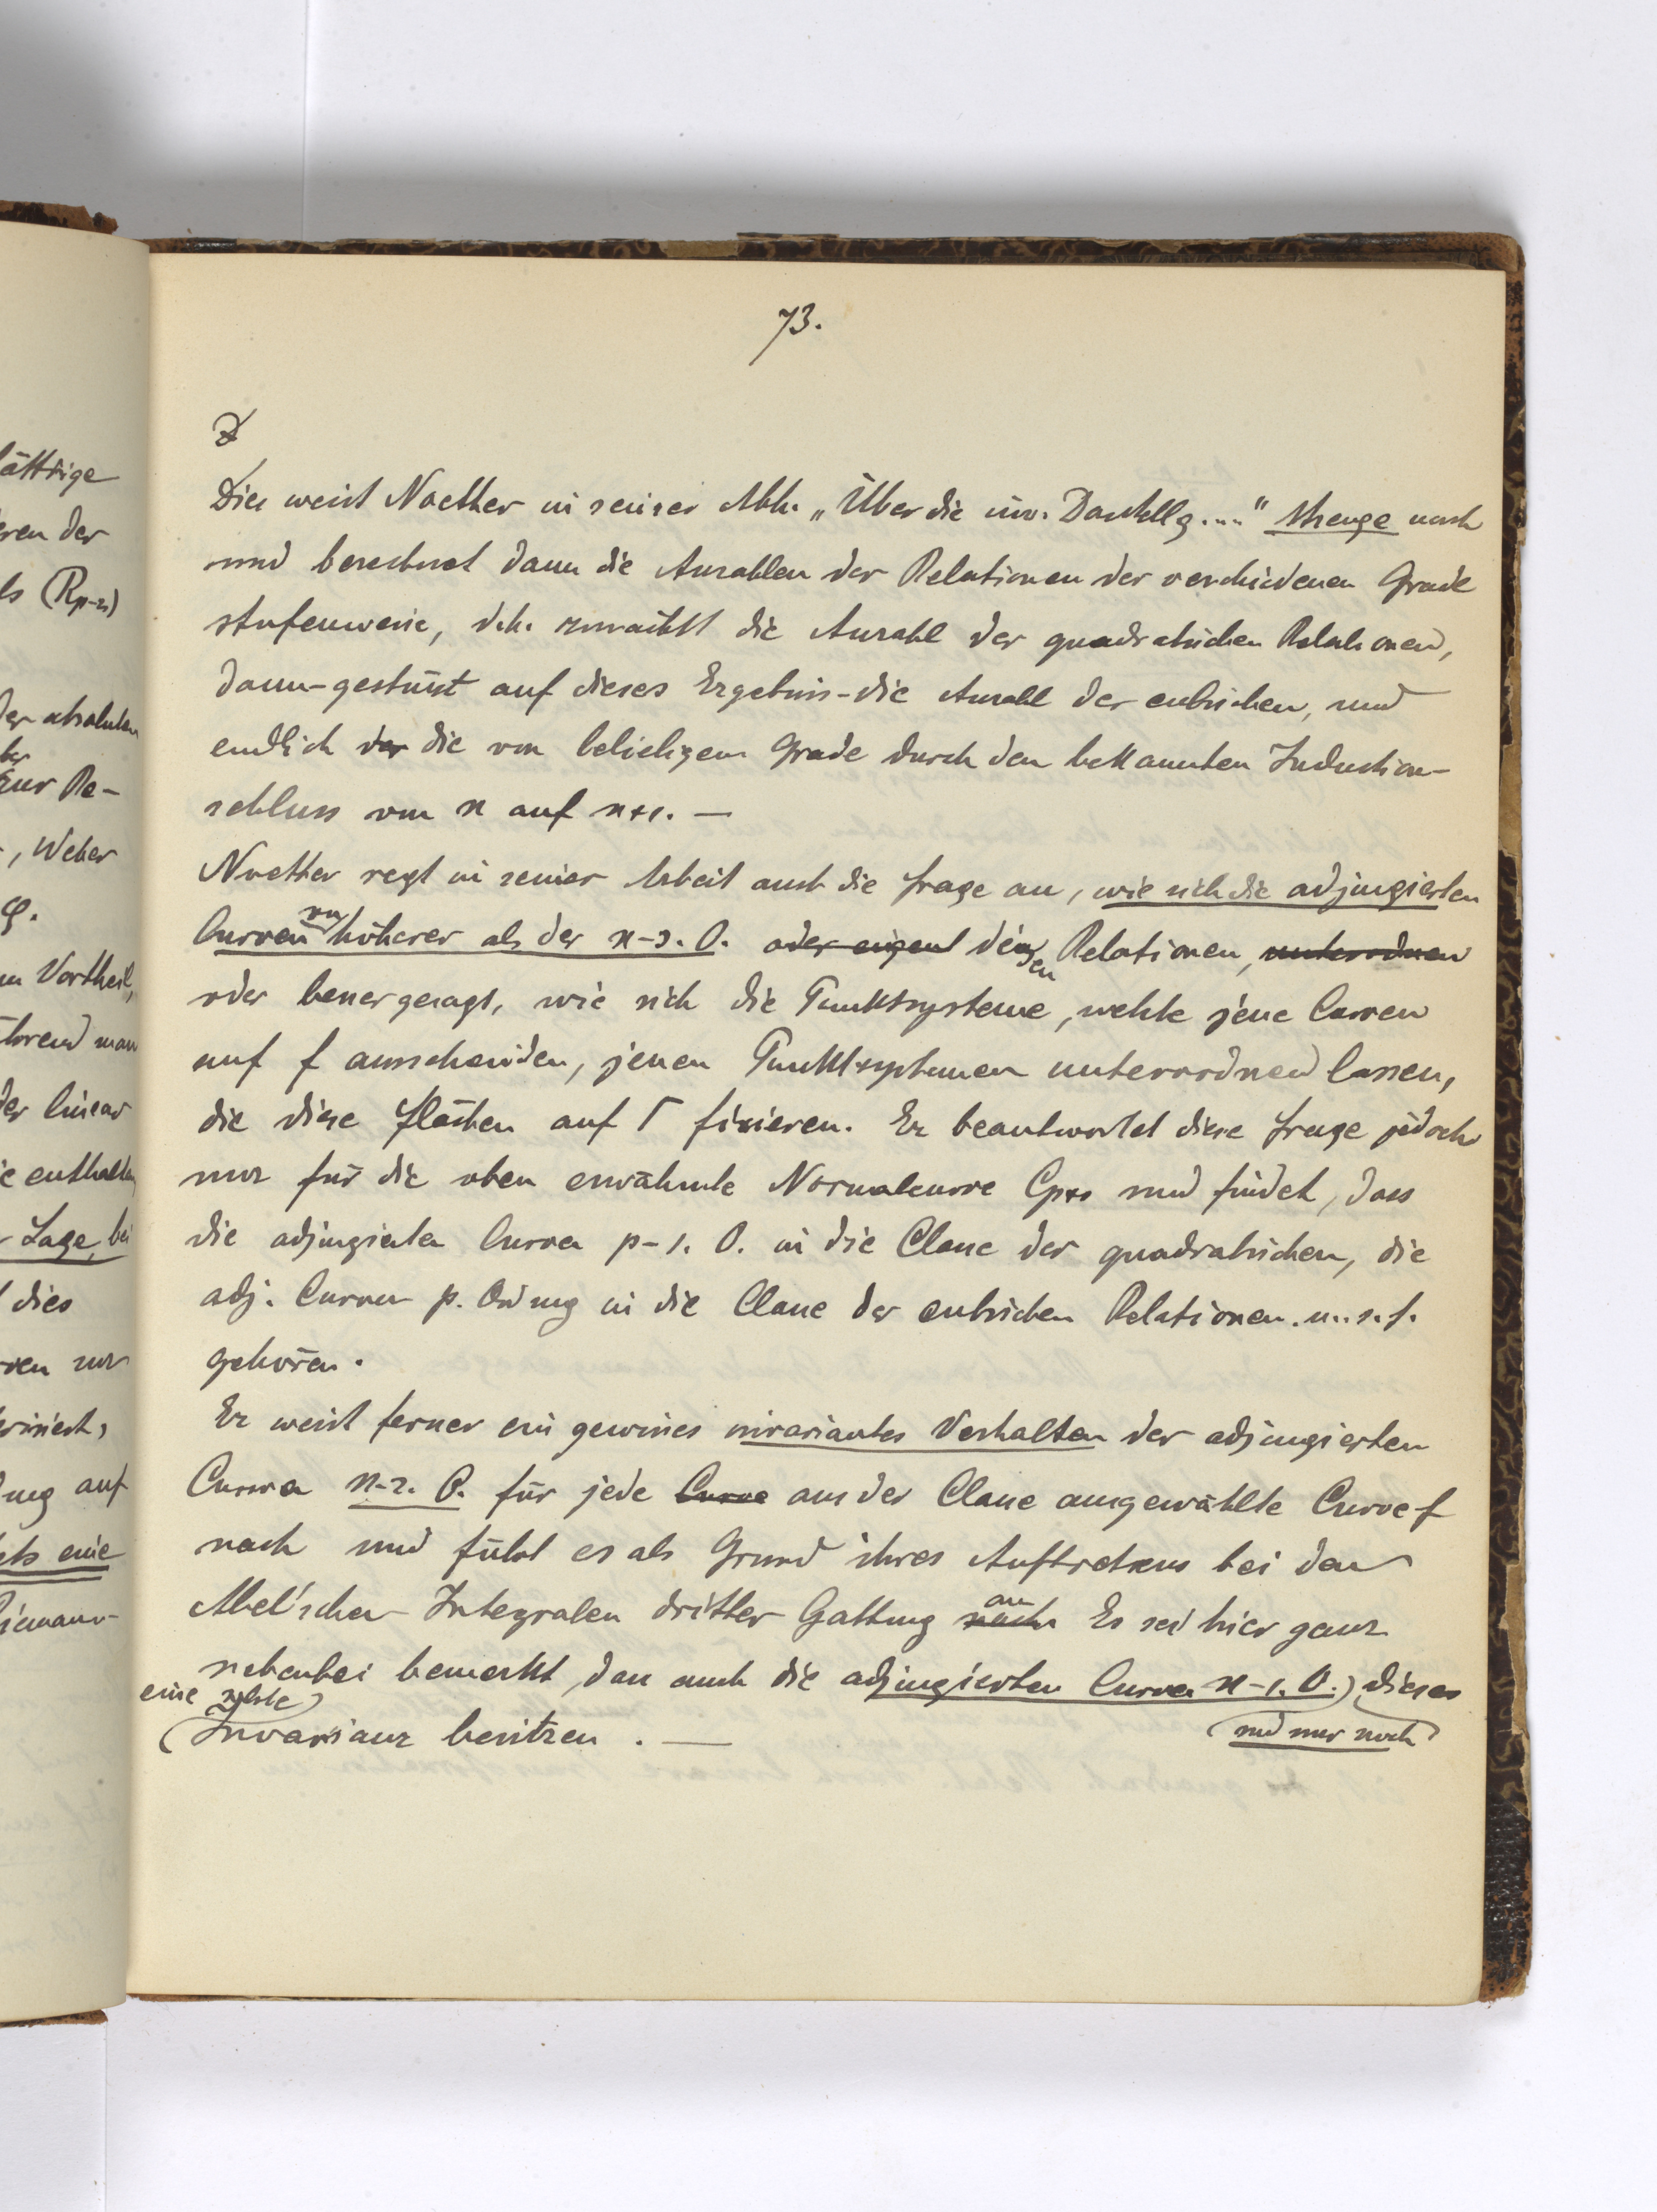 73.
Dies weist Noether in seiner Abh. „Über die inv. Darstellg...." strenge nach
und berechnet dann die Anzahlen der Relationen der verschiedenen Grade
stufenweise, d.h. zunächst die Anzahl der quadratischen Relationen,
dann-gestützt auf dieses Ergebnis-die Anzahl der cubischen, und
endlich der die von beliebigem Grade durch den bekannten Induction-
schluss von n auf n+1. —
Noether regt in seiner Arbeit auch die Frage an, wie sich die adjungierten
Curven von höherer als der n-3. O. oder eigent denjen Relationen, unterordnen
oder besser gesagt, wie sich die Punktsysteme, welche jene Curven
auf f ausschneiden, jenen Punktsystemen unterordnen lassen,
die diese Flächen auf Γ fixieren. Er beantwortet diese Frage jedoch
nur für die oben erwähnte Normalcurve Cp+1 und findet, dass
die adjungierten Curven p-1. O. in die Classe der quadratischen, die
adj. Curven p. Ordnung in die Classe der cubischen Relationen. u. s. f.
gehören.
Er weist ferner ein gewisses invariantes Verhalten der adjungierten
Curven n-2. O. für jede Curve aus der Classe ausgewählte Curve f
nach und führt es als Grund ihres Auftretens bei den
Abel'schen Integralen dritter Gattung nach an Es sei hier ganz
nebenbei bemerkt, dass auch die adjungierten Curven n-1. O. dieses
und nur noch
eine solche
Invarianz besitzen. —
lättrige
eren der
ls (Rp-1)
der absoluten
zur Re-
, Weber
φ.
m Vortheil,
ährend man
der linear
ie enthalten
Lage, bei
dies
ung auf
ets eine
Riemann-